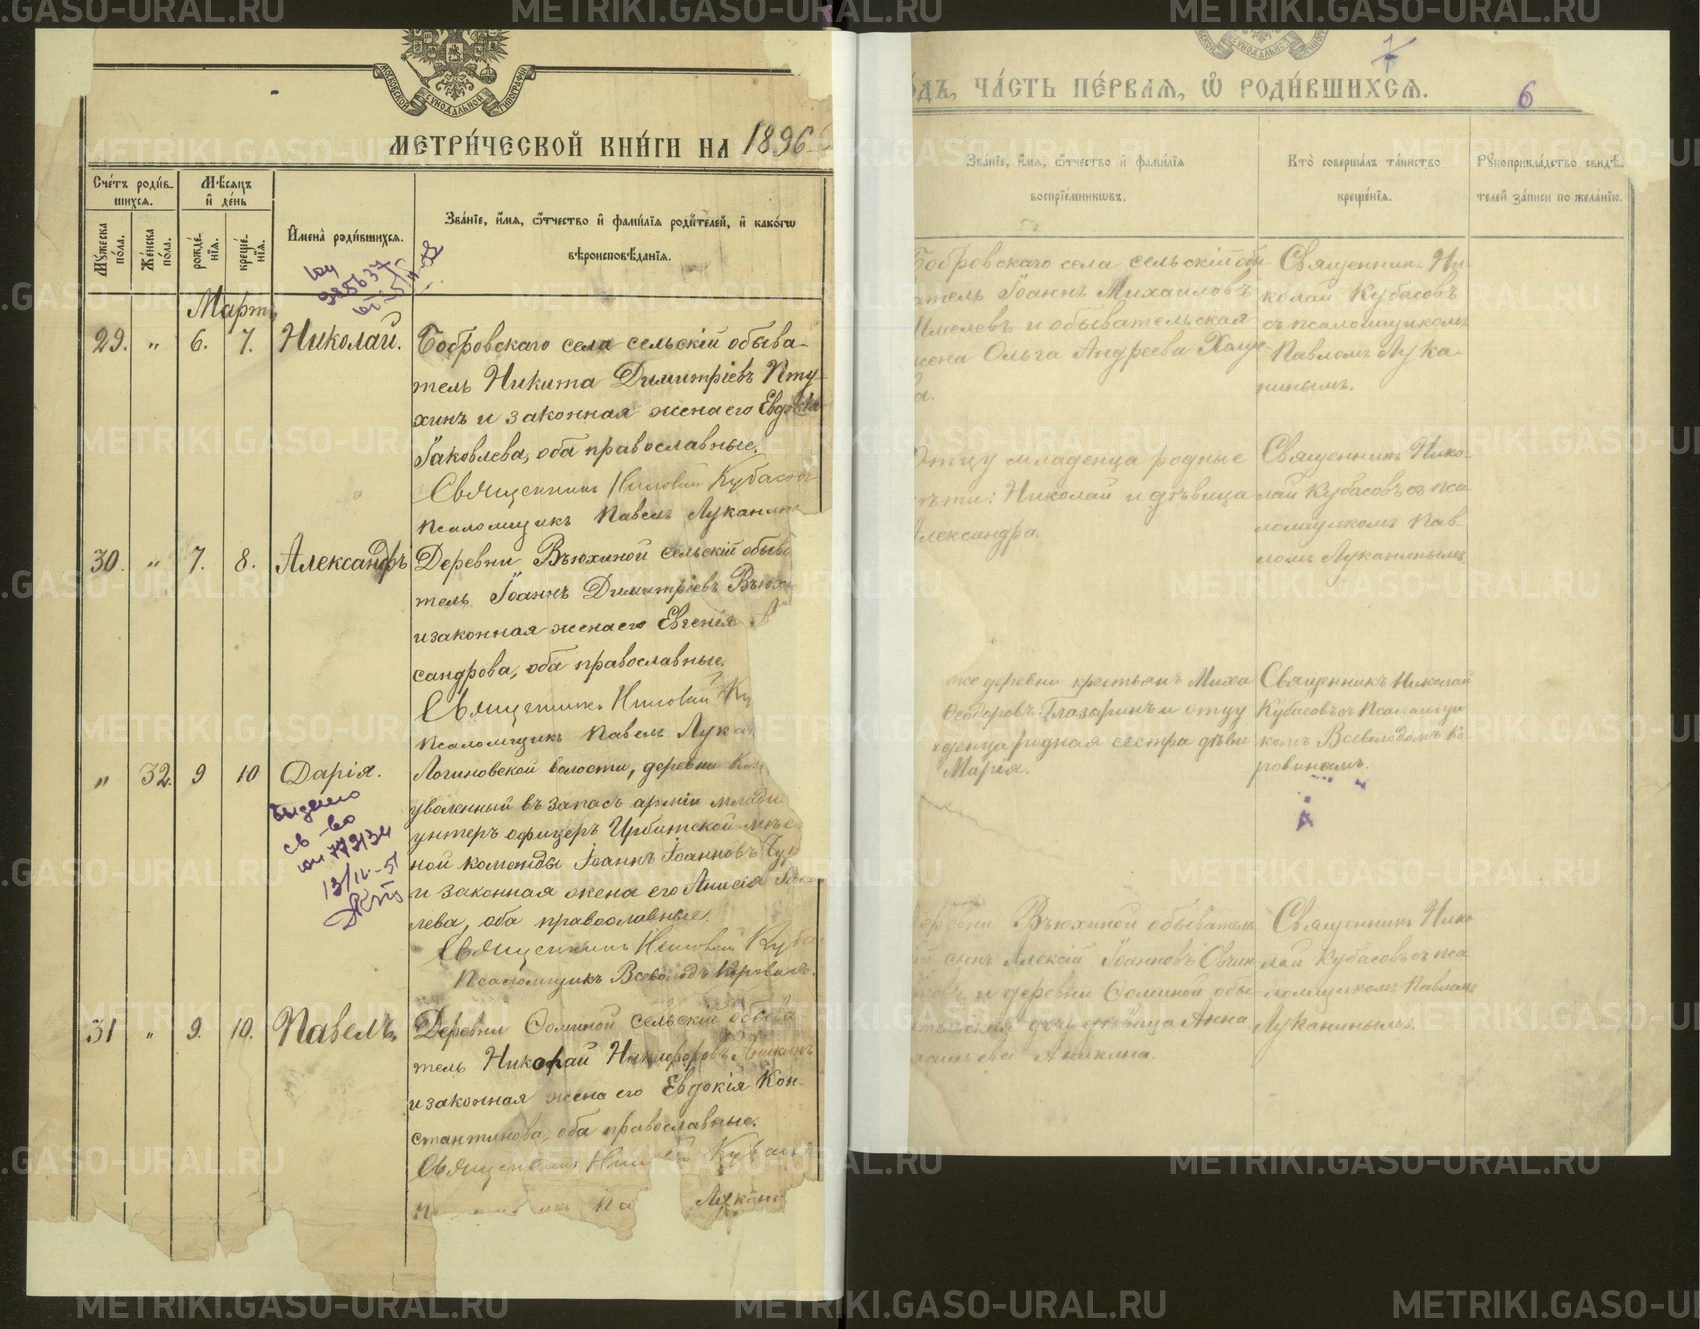 МЕТРИ́ЧЕСКОЙ КНИ́ГИ НА 1896
Сче́тъ роди́в-
шихся.
Мѣсяцъ
и҆ де́нь
Мꙋ́жеска
по́ла.
Же́нска
по́ла.
рожде́-
нїѧ.
креще́-
нїѧ.
И҆мена̀ роди́вшихся.
Зва́нїе, и҆́мя, ѻ҆́тчество и҆ фами́лїя роди́телей, и҆ како́гѡ
вѣроисповѣ́данїя.
Мартъ
29. " 6. 7. Николай. Бобровскаго села сельскій обыва-
тель Никита Димитріевъ Пту-
хинъ и законная жена его
Іаковлева, оба православные.
Священникъ Николай Кубасовъ
Псаломщикъ Павелъ Луканинъ
30. " 7. 8. Александръ Деревни Вьюхиной сельскій обыва
тель Іоаннъ Димитріевъ Вьюх
и законная жена его Евгенія
сандрова, оба православные.
Священникъ Николай Ку
Псаломщикъ Павелъ Лука
" 32. 9 10 Дарія. Логиновской волости, деревни
уволенный въ запасъ арміи младш
унтеръ офицеръ Ирбитской мѣст
ной команды Іоаннъ Іоанновъ
и законная жена его Анисія
лева, оба православные.
Священникъ Николай Кубас
Псаломщикъ Всеволодъ Коровинъ.
выдано
св-во
13/IV-51
31 " 9. 10. Павелъ. Деревни Соминой сельскій обыва
тель Николай Никифоровъ Аникинъ
и законная жена его Евдокія Кон-
стантинова, оба православные.
Священникъ Николай Кубасовъ
Лукани
ѻ́дъ, ЧА́СТЬ ПЕ́РВАЯ, Ѽ РОДИ́ВШИХСЯ.
6
Зва́нїе, и҆́мя, ѻ҆́тчество и҆ фами́лїя
воспрїе́мникѡвъ.
Кто̀ соверша́лъ та́инство
креще́нїя.
Рꙋкоприкла́дство свидѣ́-
телей за́писи по жела́нїю.
Бобровскаго села сельскій обы
атель Іоаннъ Михаиловъ
и обывательская
жена Ольга Андреева
Священникъ Ни-
колай Кубасовъ
съ псаломщикомъ
Павломъ Лука-
нинымъ.
Отцу младенца родные
дѣти: Николай и дѣвица
Александра.
Священникъ Нико-
лай Кубасовъ съ пса
ломщикомъ Пав-
ломъ Луканинымъ
же деревни крестьян Миха
Ѳеодоровъ Глазаринъ и отцу
денца родная сестра дѣви
Марія.
Священникъ Николай
Кубасовъ съ Псаломщи
комъ Всеволодомъ Ко
ровинымъ.
деревни Вьюхиной обыватель
сынъ Алексій Іоанновъ Овчин
ковъ и деревни Соминой обы-
дочь дѣвица Анна
Аникина.
Священникъ Нико
лай Кубасовъ съ пса
ломщикомъ Павломъ
Луканинымъ.